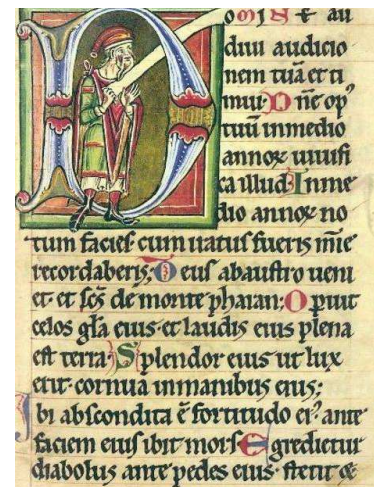 omiɴᴇ au
diui audicio
nem tuā et ti
mui· Dn̄e opꝰ
tuū inmedio
annoꝝ uiuifi
ca illud· Inme
dio annoꝝ no
tum facies cum iratus fueris mīe
recordaberis; Deus abaustro ueni
et· et sc̄s de monte pharan; Operuit
celos gl̄a eius· et laudis eius plena
est terra· Splendor eius ut lux
erit· cornua inmanibus eius;
Ibi abscondita ē fortitudo eiꝰ· ante
faciem eius ibit mors· Egredietur
diabolus ante pedes eius· stetit &